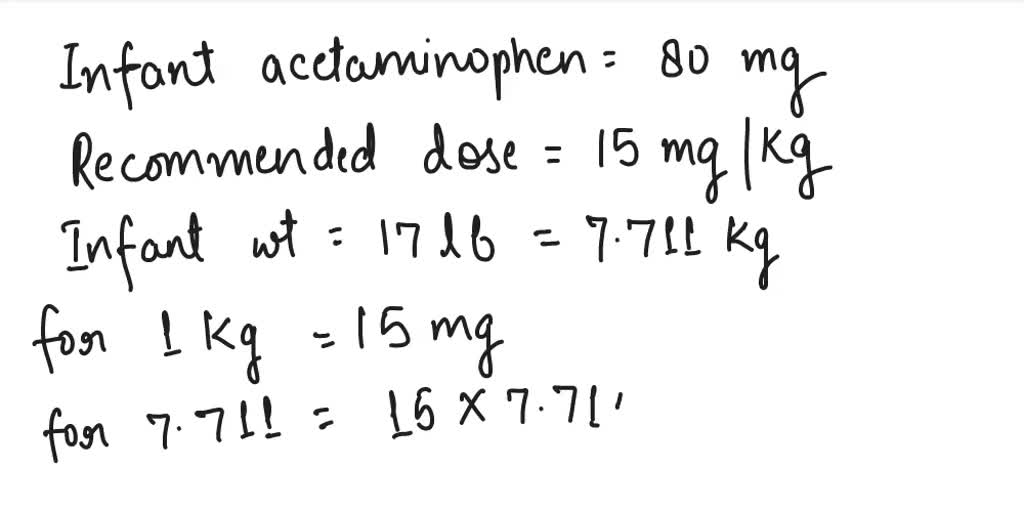 Infant acetaminophen = 80 mg
Recommended dose = 15 mg/Kg
Infant wt = 17 lb = 7.711 Kg
for 1 Kg = 15 mg
for 7.711 = 15 × 7.71'